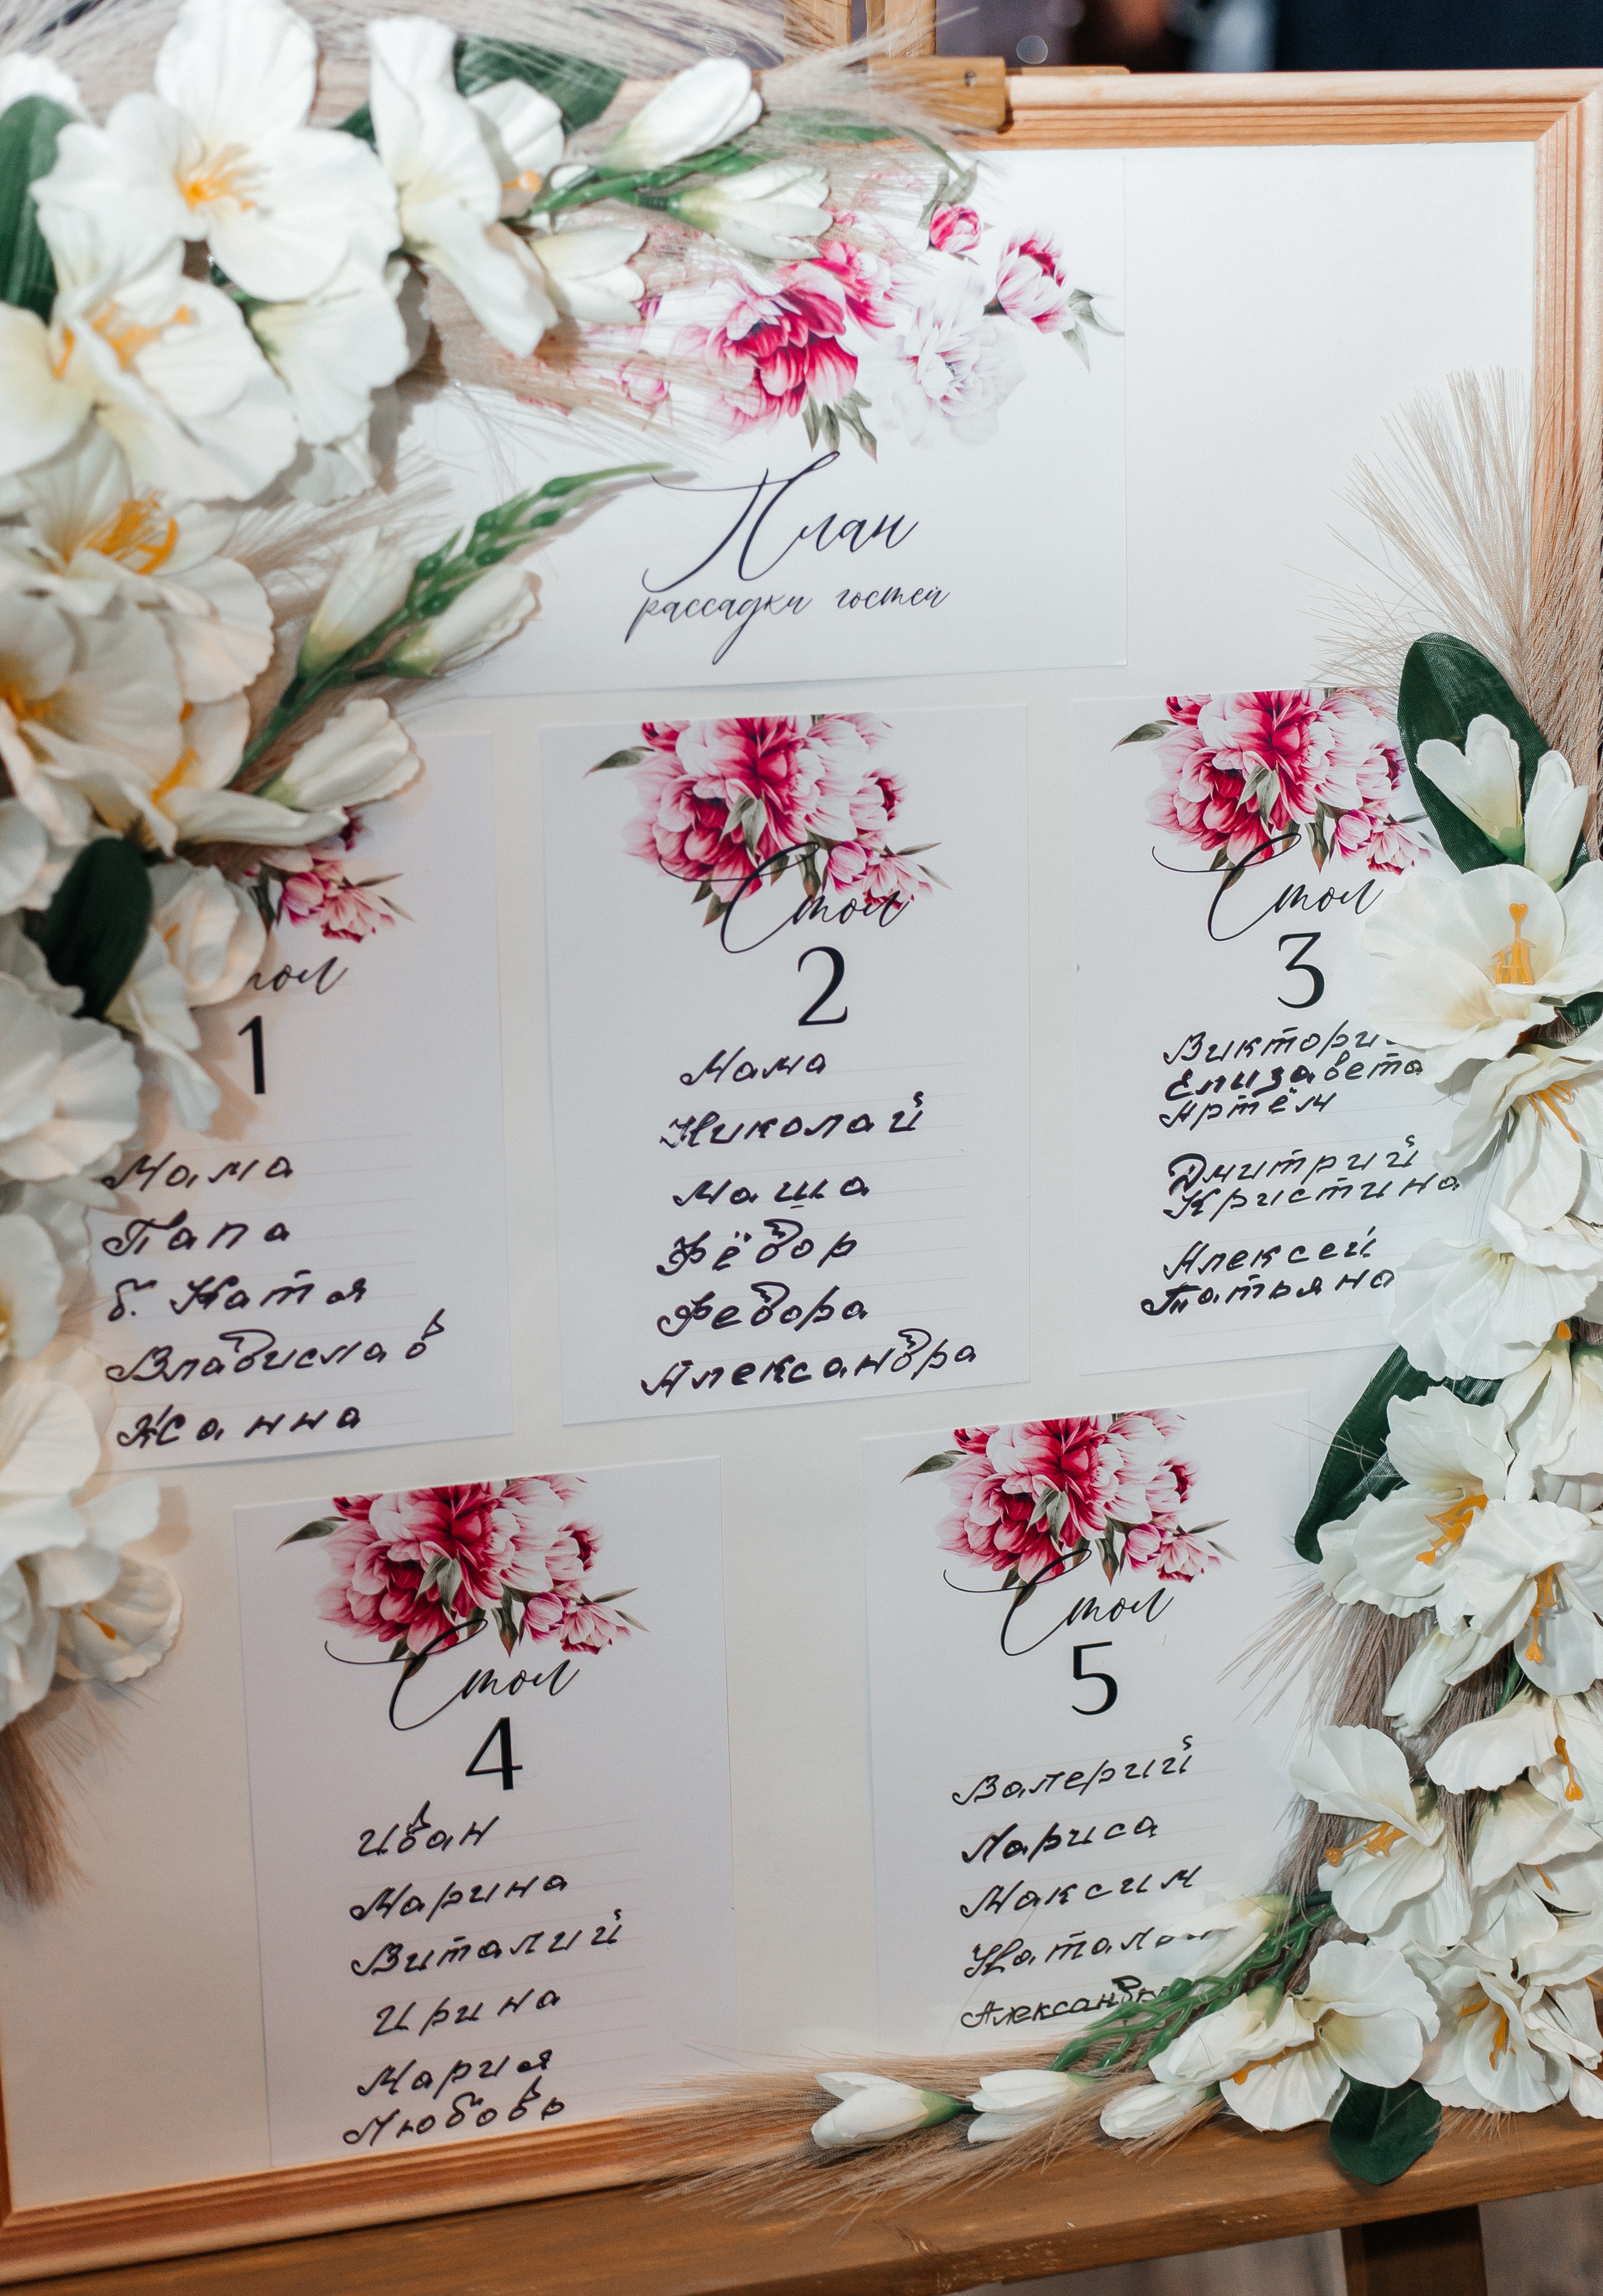 План
рассадки гостей
1
Мама
Папа
б. Катя
Владислав
Жанна
Стол
2
Мама
Николай
Маша
Фёдор
Федора
Александра
Стол
3
Елизавета
Артём
Дмитрий
Кристина
Алексей
Татьяна
Стол
4
Иван
Марина
Виталий
Ирина
Мария
Любовь
Стол
5
Валерий
Лариса
Максим